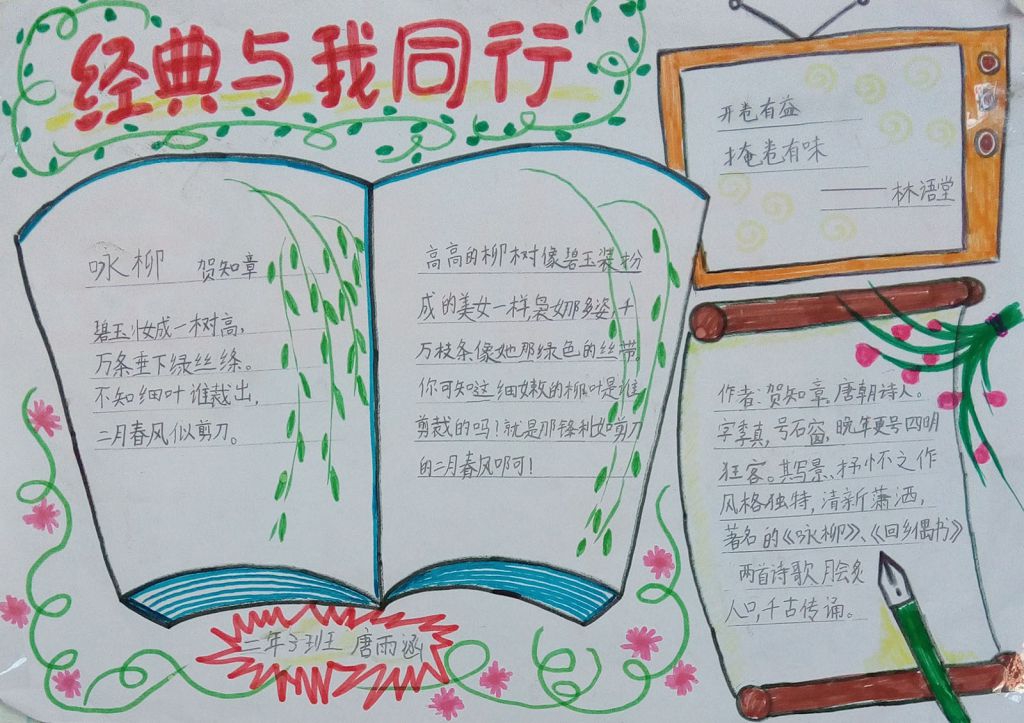 经典与我同行
咏柳 贺知章
碧玉妆成一树高,
万条垂下绿丝绦。
不知细叶谁裁出,
二月春风似剪刀。
高高的柳树像碧玉装粉
成的美女一样,袅娜多姿,千
万枝条像她那绿色的丝带。
你可知这细嫩的柳叶是谁
剪裁的吗?就是那锋利如剪刀
的二月春风叩可!
二年3班 唐雨涵
开卷有益
掩卷有味
——林语堂
作者:贺知章。唐朝诗人。
字季真,号石窗,晚年更号四明
狂客。其写景、抒怀之作
风格独特,清新潇洒,
著名的《咏柳》、《回乡偶书》
两首诗歌脍炙
人口,千古传诵。